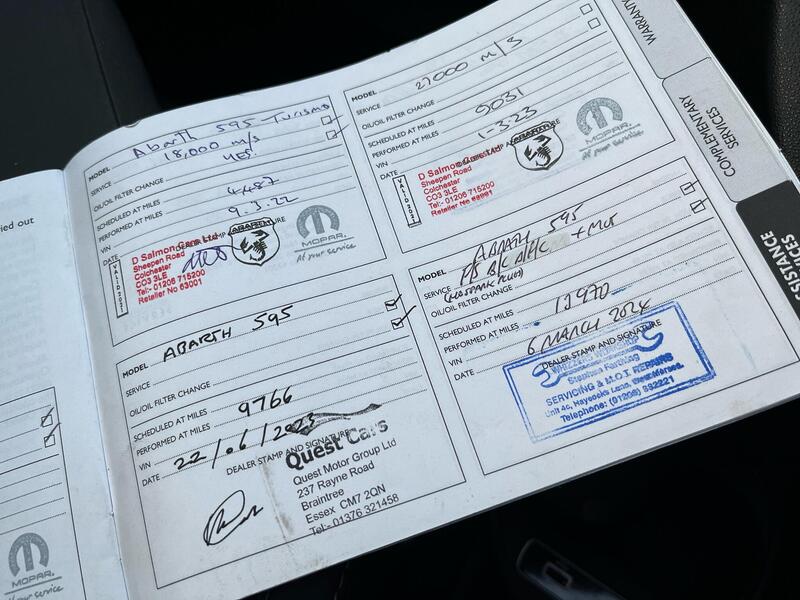 ied out
MODEL Abarth 595 Turismo
SERVICE 18,000 m/s
OIL/OIL FILTER CHANGE YES.
SCHEDULED AT MILES
PERFORMED AT MILES 4487
VIN
DATE 9.3.22
DEALER STAMP AND SIGNATURE
VALID 2021
D Salmon Cars Ltd
Sheepen Road
Colchester
CO3 3LE
Tel:- 01206 715200
Retailer No 63001
ABARTH
MOPAR.
at your service
MODEL
SERVICE 27000 m/s
OIL/OIL FILTER CHANGE
SCHEDULED AT MILES
PERFORMED AT MILES 9031
VIN
DATE 1-3-23
VALID 2021
D Salmon Cars Ltd
Sheepen Road
Colchester
CO3 3LE
Tel:- 01206 715200
Retailer No
ABARTH
MOPAR.
at your service
MODEL ABARTH 595
SERVICE
OIL/OIL FILTER CHANGE
SCHEDULED AT MILES
PERFORMED AT MILES 9766
VIN
DATE 22/06/2023
DEALER STAMP AND SIGNATURE
Quest Cars
Quest Motor Group Ltd
237 Rayne Road
Braintree
Essex CM7 2QN
Tel:- 01376 321458
MODEL ABARTH 595
SERVICE + MOT
OIL/OIL FILTER CHANGE
SCHEDULED AT MILES
PERFORMED AT MILES
VIN
DATE 6 MARCH 2024
DEALER STAMP AND SIGNATURE
Stephen Farthing
SERVICING & M.O.T. REPAIRS
Telephone: (01206)
WARRANTY
COMPLEMENTARY
SERVICES
MOPAR
at your service